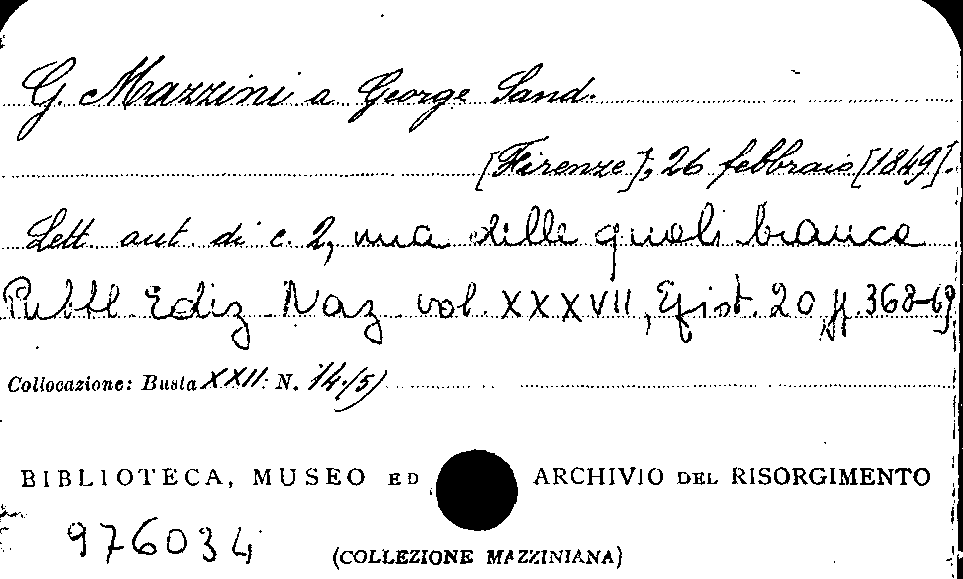 G. Mazzini a George Sand.
[Firenze]; 26 febbraio [1849].
Lett. aut. di c. 2, una delle quali bianca
Pubbl. Ediz. Naz. vol. XXXVII, Epist. 20, pp. 368-69
Collocazione: Busta XXII. N. 14/5)
BIBLIOTECA, MUSEO ED ARCHIVIO DEL RISORGIMENTO
976034
(COLLEZIONE MAZZINIANA)